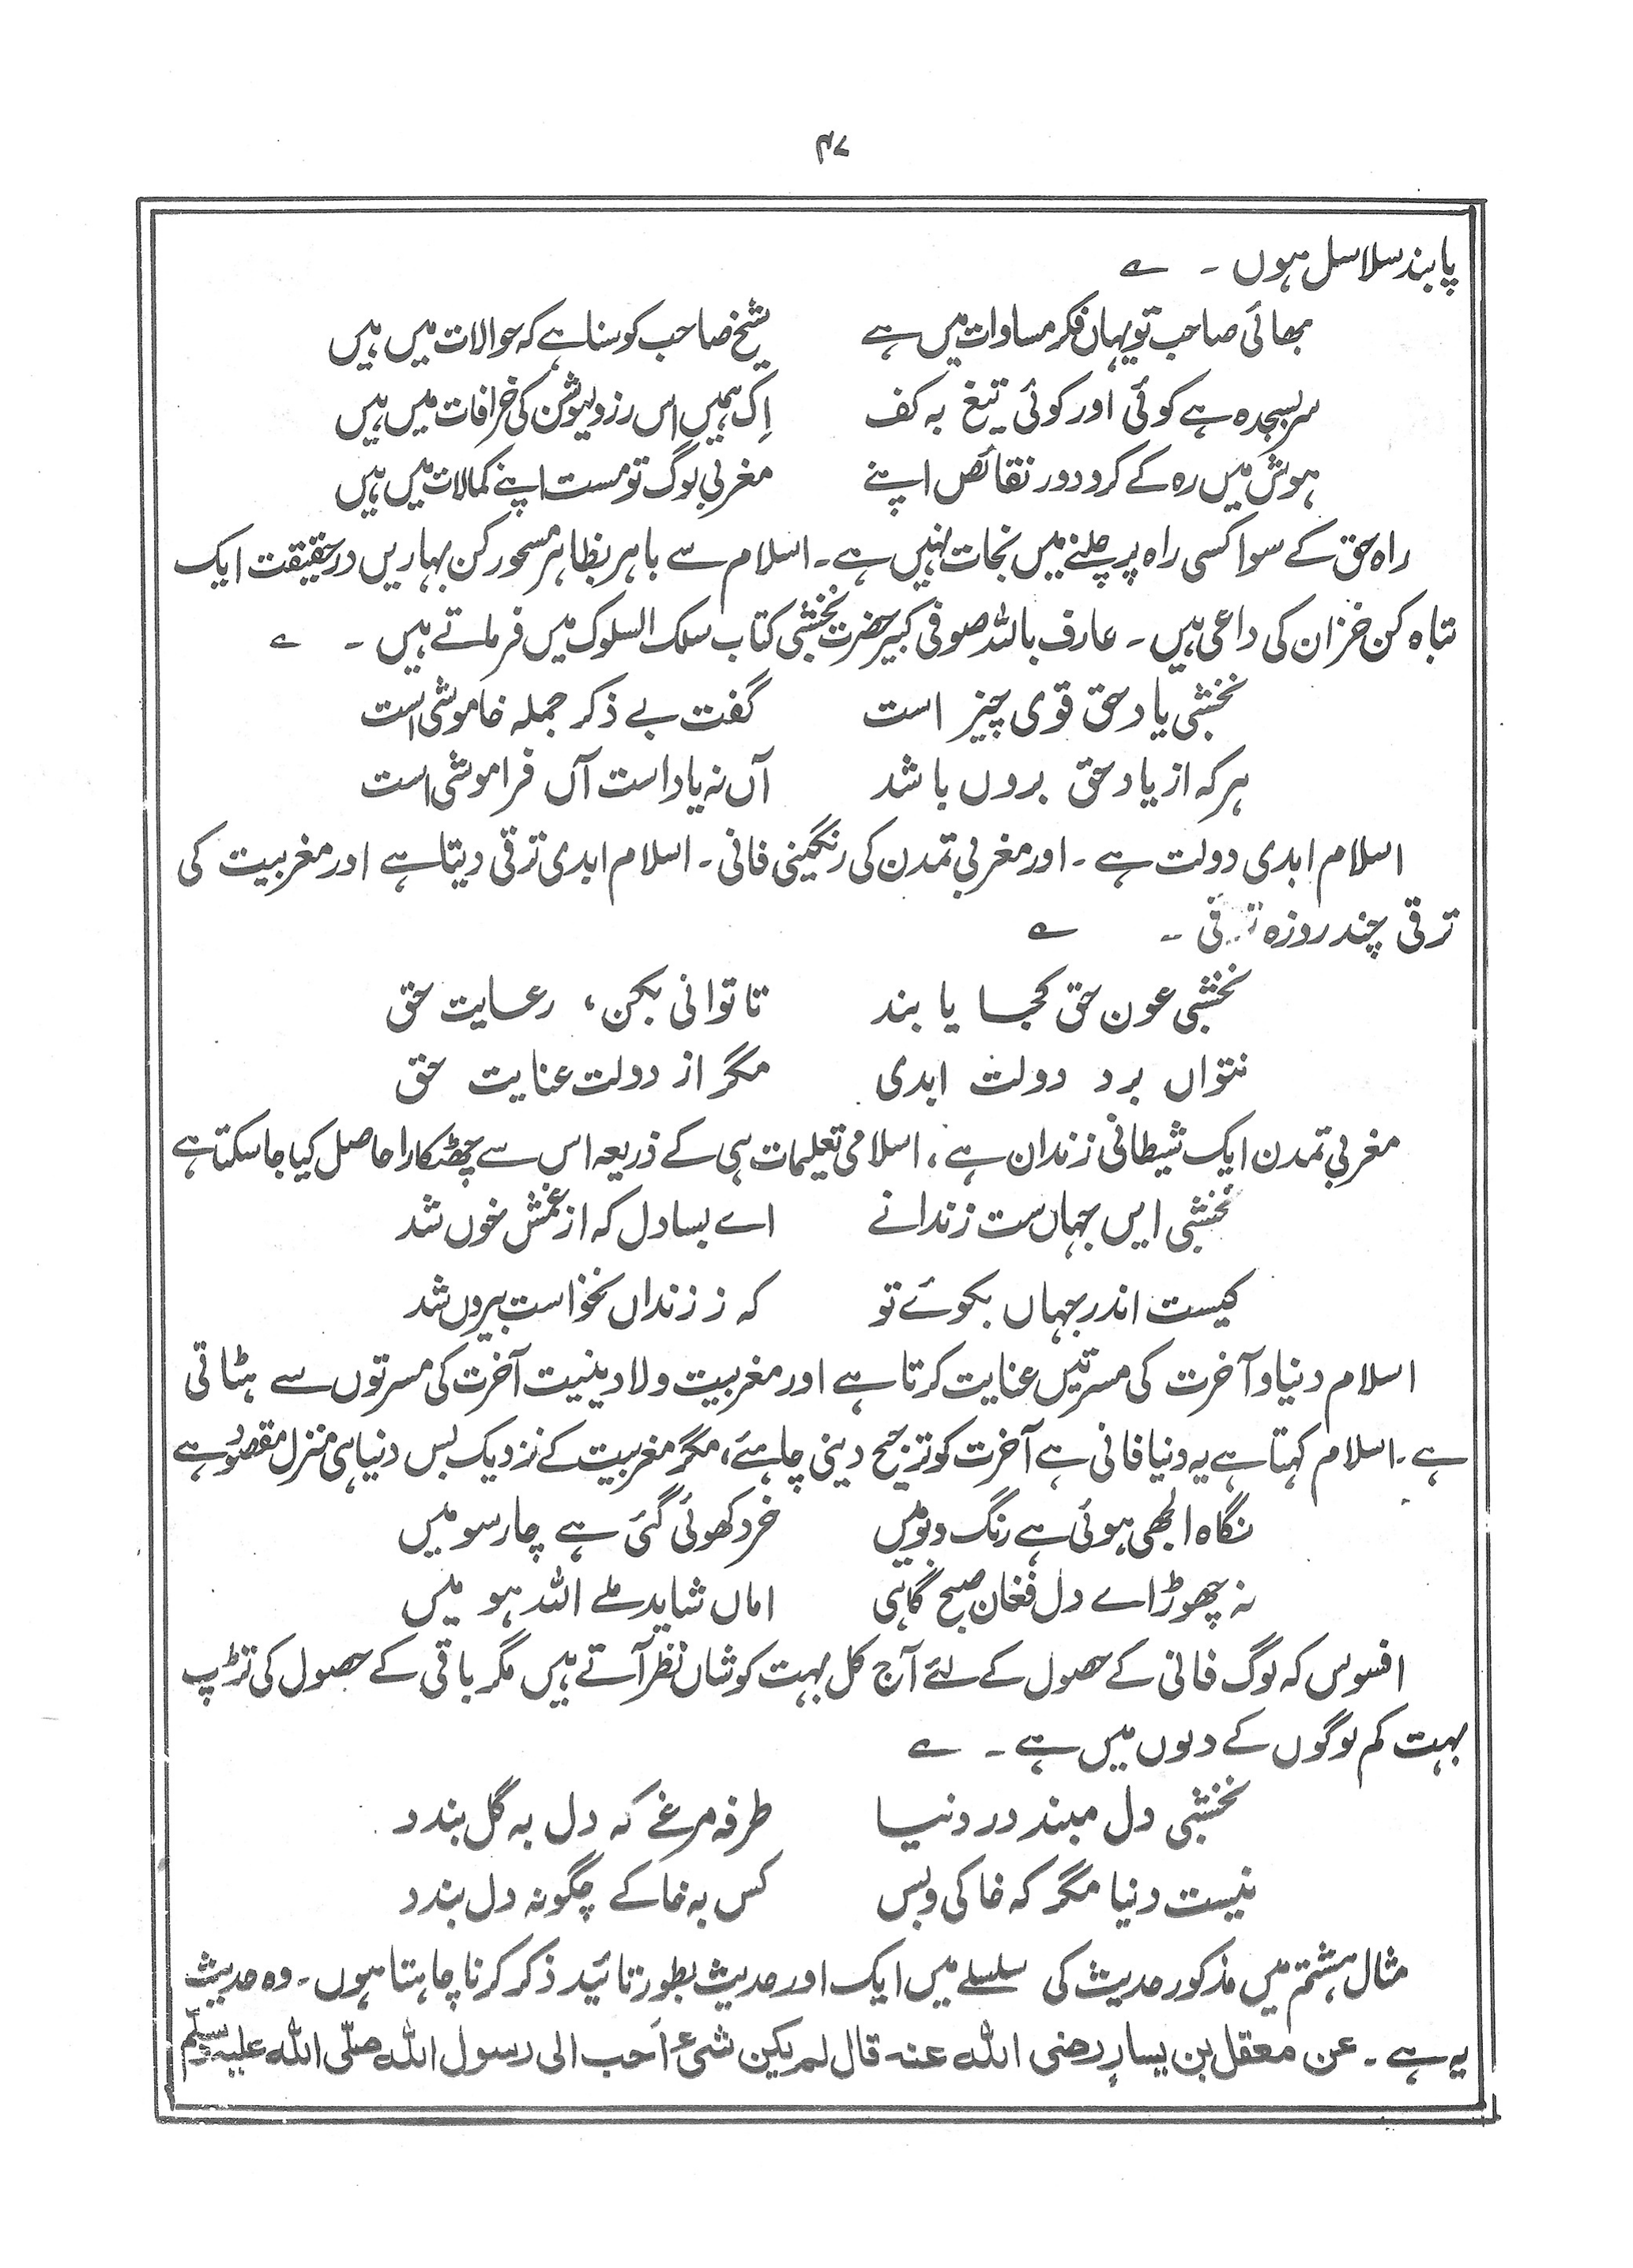 ۴۷
پابند سلاسل ہوں ۔ ؎
بھائی صاحب تو یہاں فکر مساوات میں ہے شیخ صاحب کو سنا ہے کہ حوالات میں ہیں
سر بسجدہ ہے کوئی اور کوئی تیغ بہ کف اِک ہمیں اس رزولیوشن کی خرافات میں ہیں
ہوش میں رہ کے کرو دور نقائص اپنے مغربی لوگ تو مست اپنے کمالات میں ہیں
راہ حق کے سوا کسی راہ پر چلنے میں نجات نہیں ہے۔ اسلام سے باہر بظاہر مسحور کن بہاریں درحقیقت ایک
تباہ کن خزاں کی داعی ہیں ۔ عارف باللہ صوفی کبیر حضرت نخشبی کتاب سلک السلوک میں فرماتے ہیں ۔ ؎
نخشبی یاد حق قوی چیز است گفت بے ذکر جملہ خاموشی است
ہر کہ از یاد حق بروں باشد آں نہ یاد است آں فراموشی است
اسلام ابدی دولت ہے ۔ اور مغربی تمدن کی رنگینی فانی ۔ اسلام ابدی ترقی دیتا ہے اور مغربیت کی
ترقی چند روزہ ترقی ۔ ؎
نخشبی عون حق کجا یابند تا توانی بکن، رعایت حق
نتواں برد دولت ابدی مگر از دولت عنایت حق
مغربی تمدن ایک شیطانی زندان ہے، اسلامی تعلیمات ہی کے ذریعہ اس سے چھٹکارا حاصل کیا جا سکتا ہے
نخشبی ایں جہاں ست زندانے اے بسا دل کہ از غمش خوں شد
کیست اندر جہاں بکوئے تو کہ ز زنداں نخواست بیروں شد
اسلام دنیا و آخرت کی مسرتیں عنایت کرتا ہے اور مغربیت ولادینیت آخرت کی مسرتوں سے ہٹاتی
ہے۔ اسلام کہتا ہے یہ دنیا فانی ہے آخرت کو ترجیح دینی چاہئے، مگر مغربیت کے نزدیک بس دنیا ہی منزل مقصود ہے
نگاہ الجھی ہوئی ہے رنگ و بو میں خرد کھوئی گئی ہے چار سو میں
نہ چھوڑ اے دل فغان صبح گاہی اماں شاید ملے اللہ ہو میں
افسوس کہ لوگ فانی کے حصول کے لئے آج کل بہت کوشاں نظر آتے ہیں مگر باقی کے حصول کی تڑپ
بہت کم لوگوں کے دلوں میں ہے ۔ ؎
نخشبی دل مبند در دنیا طرفہ مرغے کہ دل بہ گل بندد
نیست دنیا مگر کہ خاکی و بس کس بہ خاکے چگونہ دل بندد
مثال ہشتم میں مذکور حدیث کی سلسلے میں ایک اور حدیث بطور تائید ذکر کرنا چاہتا ہوں ۔ وہ حدیث
یہ ہے ۔ عن معقل بن یسار رضی اللہ عنہ قال لم یکن شیء اَحب الی رسول اللہ صلّی اللہ علیہ وسلّم